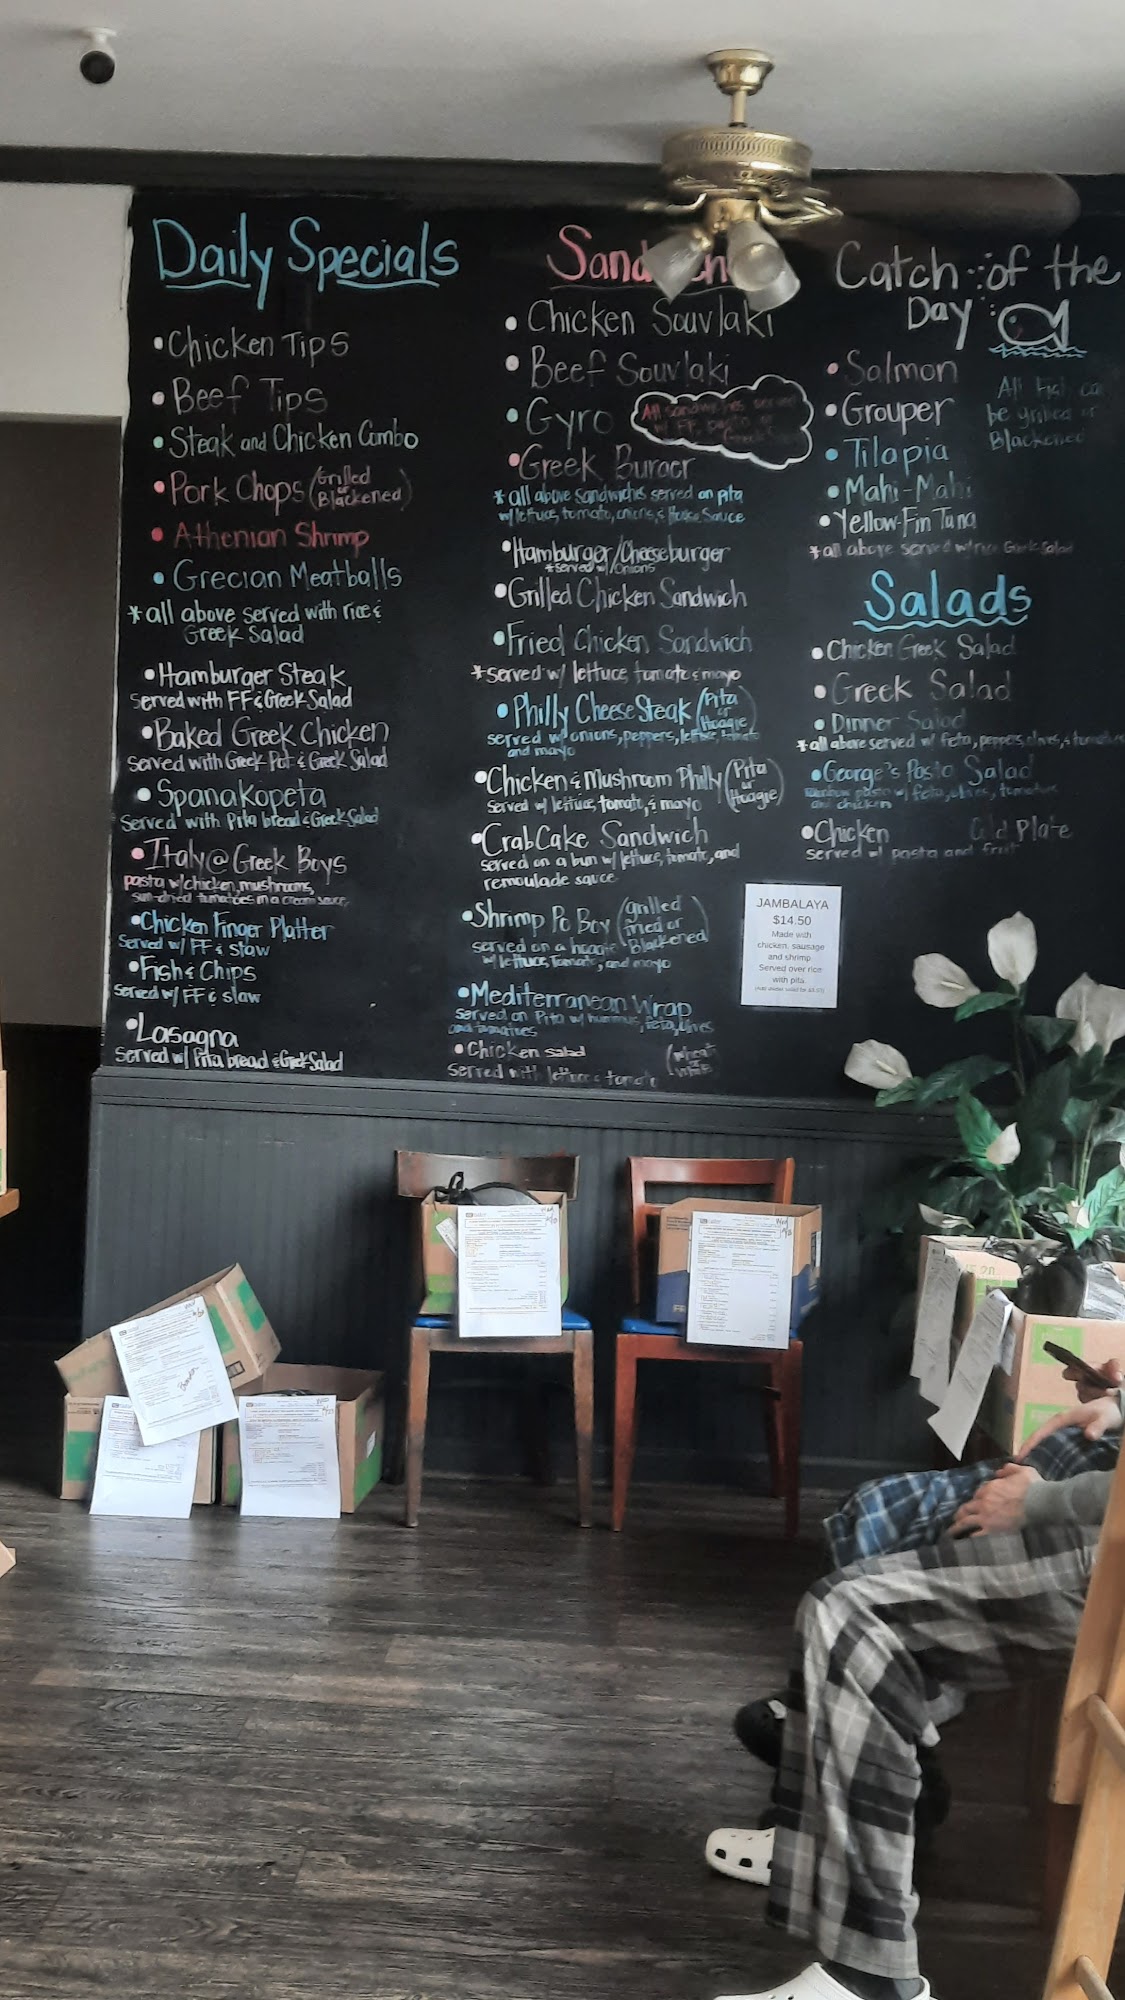 Daily Specials
• Chicken Tips
• Beef Tips
• Steak and Chicken Combo
• Pork Chops (Grilled
or
Blackened)
• Athenian Shrimp
• Grecian Meatballs
* all above served with rice &
Greek Salad
• Hamburger Steak
Served with FF & Greek Salad
• Baked Greek Chicken
Served with Greek Pot & Greek Salad
• Spanakopeta
Served with Pita bread & Greek Salad
• Italy @ Greek Boys
pasta w/ chicken, mushrooms,
sun-dried tomatoes in a cream sauce
• Chicken Finger Platter
Served w/ FF & Slaw
• Fish & Chips
Served w/ FF & slaw
• Lasagna
Served w/ Pita bread & Greek Salad
• Chicken Souvlaki
• Beef Souvlaki
• Gyro
All sandwiches served
w/ FF, pasta or
• Greek Burger
* all above sandwiches served on pita
w/ lettuce, tomato, onions, & House Sauce
• Hamburger/Cheeseburger
*served w/ onions
• Grilled Chicken Sandwich
• Fried Chicken Sandwich
* served w/ lettuce tomato & mayo
• Philly Cheese Steak (Pita
or
Hoagie)
served w/ onions, peppers, lettuce, tomato
and mayo
• Chicken & Mushroom Philly (Pita
or
Hoagie)
Served w/ lettuce, tomato, & mayo
• Crab Cake Sandwich
served on a bun w/ lettuce, tomato, and
remoulade sauce
• Shrimp Po Boy (grilled
fried or
Blackened)
served on a hoagie
w/ lettuce, tomato, and mayo
• Mediterranean Wrap
Served on Pita w/ hummus, feta, olives
and tomatoes
• Chicken salad (wheat
or
white)
served with lettuce & tomato
Catch of the
Day
• Salmon
• Grouper
• Tilapia
• Mahi-Mahi
• Yellow-Fin Tuna
All fish
be grilled or
Blackened
* all above served w/ rice Greek Salad
Salads
• Chicken Greek Salad
• Greek Salad
• Dinner Salad
* all above served w/ feta, peppers, olives, & tomatoes
• George's Pasta Salad
Rainbow pasta w/ feta, olives, tomatoes
and chicken
• Chicken Cold Plate
served w/ pasta and fruit
JAMBALAYA
$14.50
Made with
chicken, sausage
and shrimp.
Served over rice
with pita.